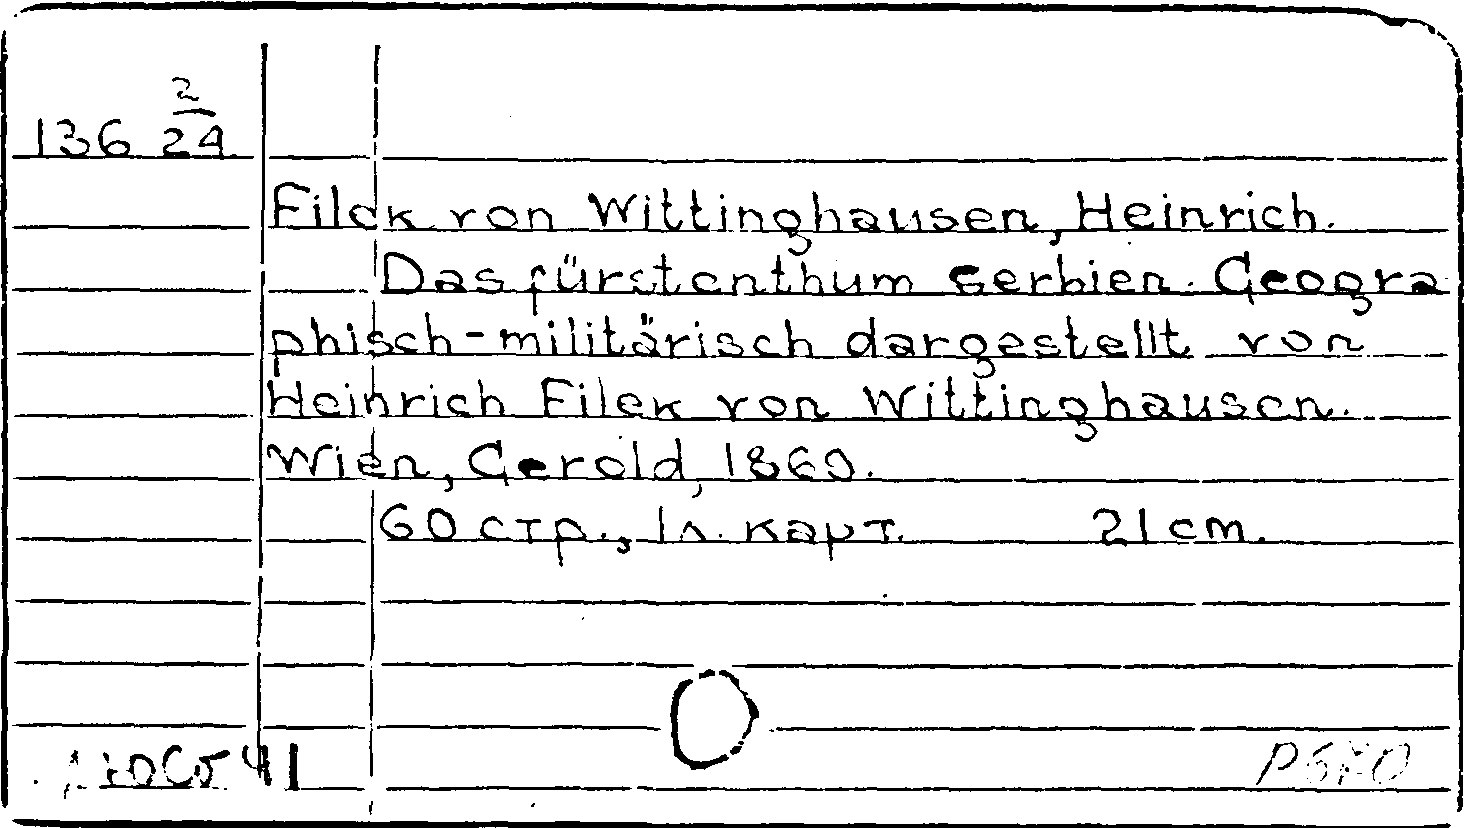 136 2/24
Filek von Wittinghausen, Heinrich.
Das fürstenthum Serbien. Geogra
phisch-militärisch dargestellt von
Heinrich Filek von Wittinghausen.
Wien, Gerold, 1869.
60 стр., 1 л. карт. 21 cm.
41